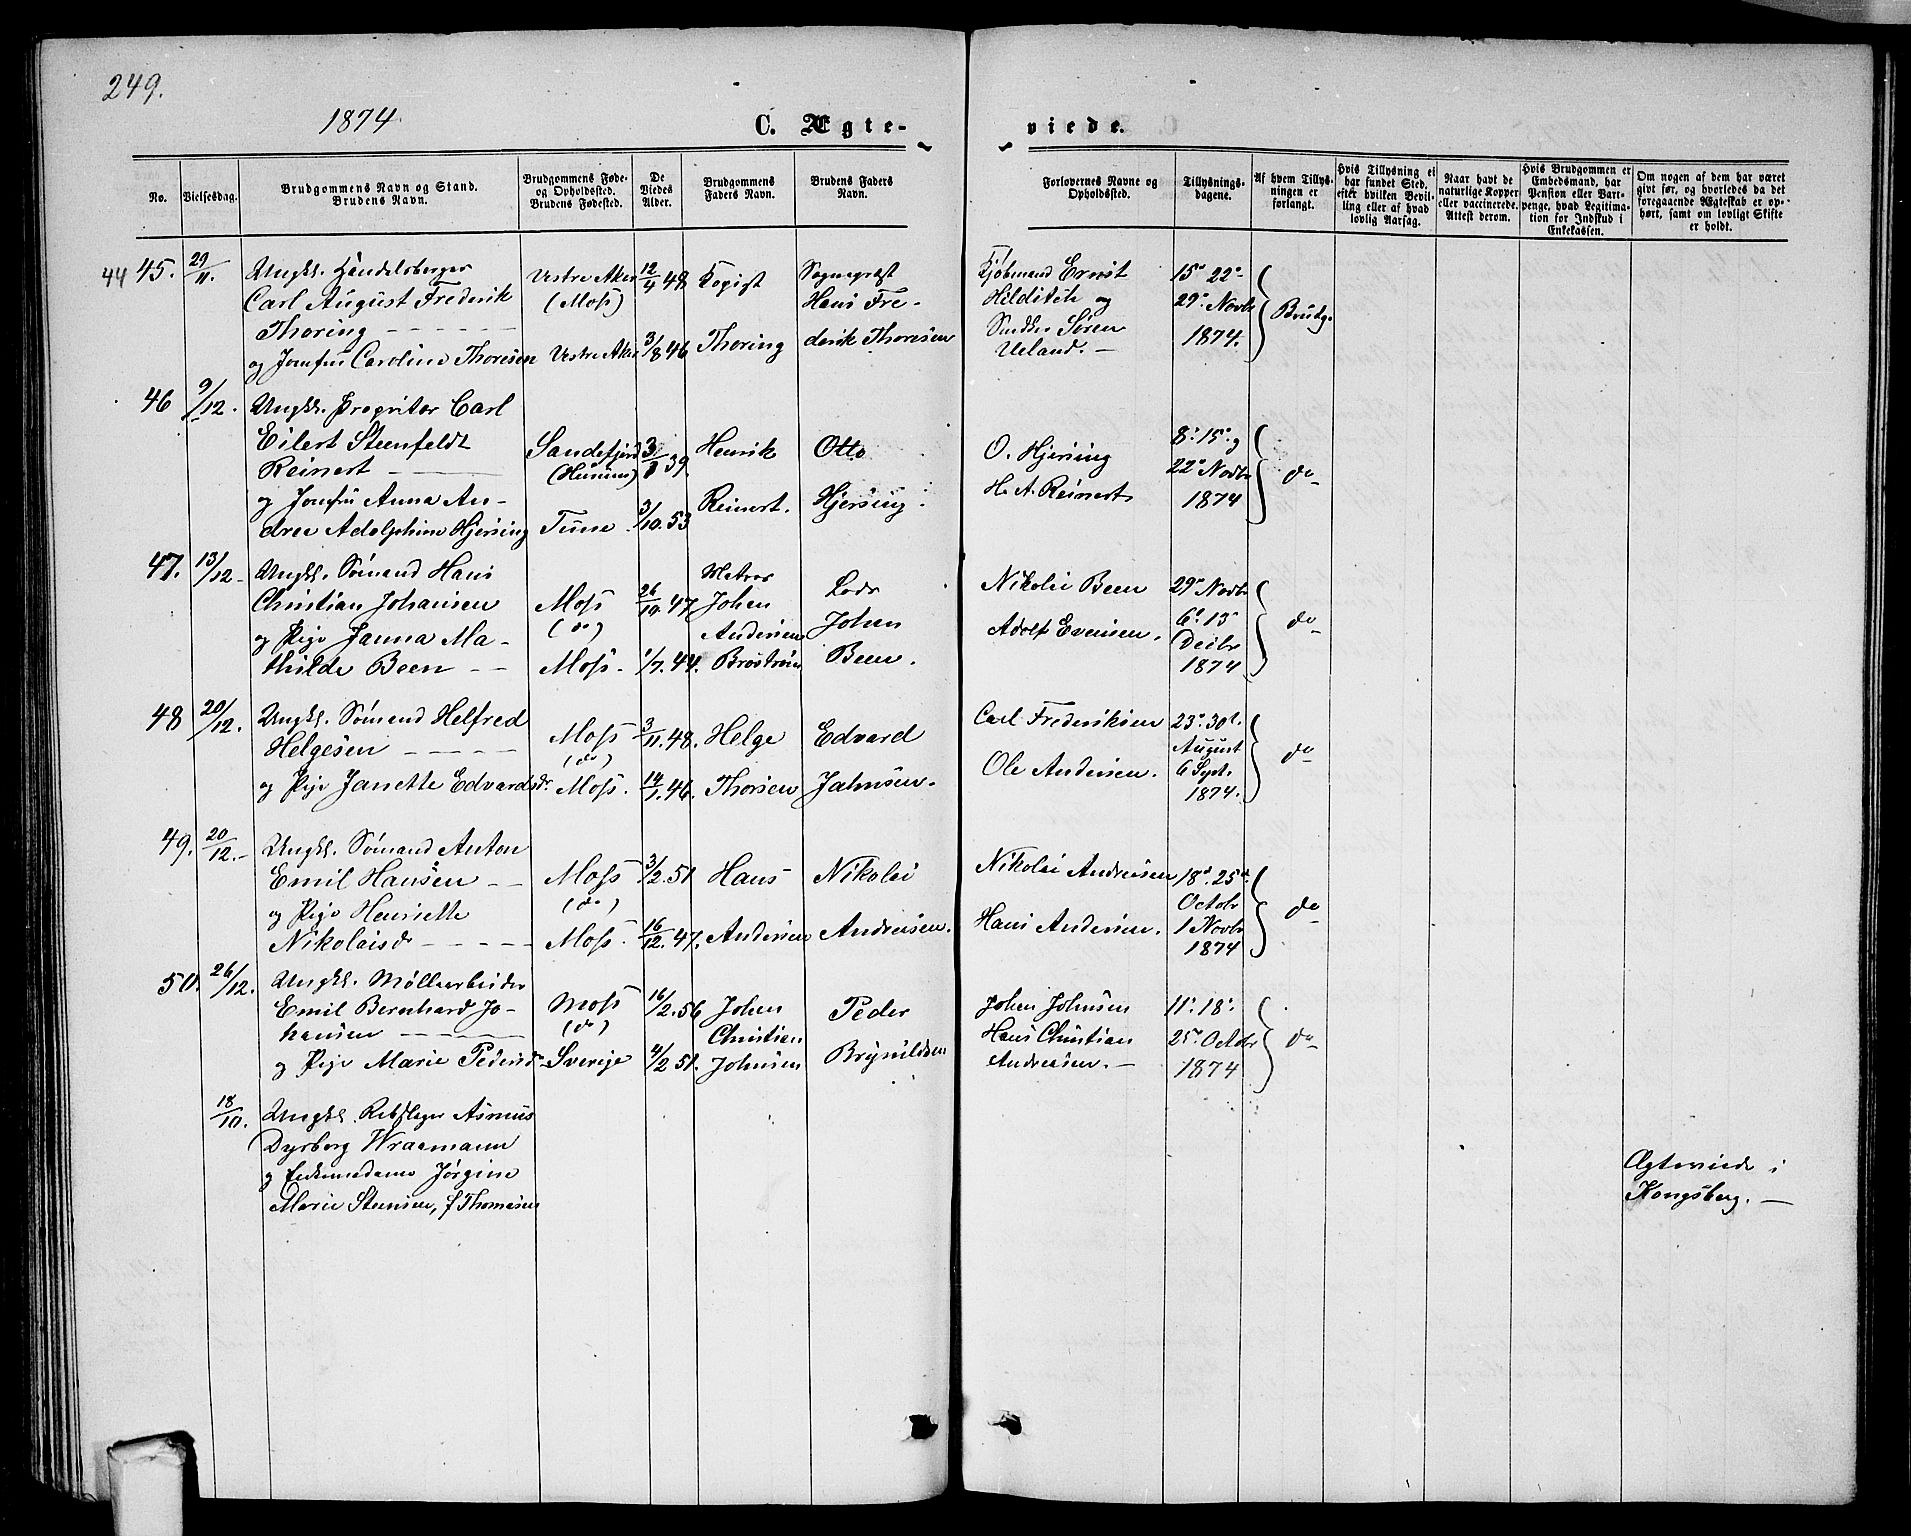 249.
1874
C. Ægte-
viede.
No.
Vielsesdag.
Brudgommens Navn og Stand.
Brudens Navn.
Brudgommens Føde-
og Opholdssted.
Brudens Fødested.
De
Viedes
Alder.
Brudgommens
Faders Navn.
Brudens Faders
Navn.
Forlovernes Navne og
Opholdssted.
Tillysnings-
dagene.
Af hvem Tillys-
ningen er
forlangt.
Hvis Tillysning ei
har fundet Sted,
efter hvilken Bevil-
ling eller af hvad
lovlig Aarsag.
Naar havt de
naturlige Kopper
eller vaccinerede.
Attest derom.
Hvis Brudgommen er
Embedsmand, har
Pension eller Vart-
penge, hvad Legitima-
tion for Indskud i
Enkekassen.
Om nogen af dem har været
gift før, og hvorledes da det
foregaaende Ægteskab er op-
hørt, samt om lovligt Skifte
er holdt.
44 45. 29/11. Ungkl. Handelsborger
Carl August Frederik
Thoring
og Jomfru Caroline Thoresen
Vestre Aker
(Moss)
Vestre Aker
12/4 48
3/8 46
Kopist
Thoring
Sogneprest
Hans Fre-
derik Thoresen
Kjøbmand Ernst
Hilditch og
Snedker Søren
Ueland. -
15de 22de
29de Novbr
1874.
Brudg.
46 9/12. Ungkl. Proprietær Carl
Eilert Steenfeldt
Reinert
og Jomfru Anna An-
drea Adolphine Hjersing
Sandefjord
Tune
3/8 39.
3/10. 53
Henrik
Reinert.
Otto
Hjersing.
O. Hjersing
H. A. Reinert
8de 15de og
22de Novbr
1874
do
47. 13/12 - Ungkl. Sømand Hans
Christian Johansen
og Pige Janna Ma-
thilde Been
Moss
(do)
Moss.
26/10. 47
1/7. 44.
Matros
Johan
Andersen
Brostrøm
Lods
Johan
Been.
Nikolai Been
Adolf Evensen.
29de Novbr
6te 13de
Decbr
1874
do
48 20/12. Ungkl. Sømand Helfred
Helgesen
og Pige Janette Edvardsdr.
Moss
(do)
Moss.
3/11. 48.
14/1. 46.
Helge
Thorsen
Edvard
Jahnsen.
Carl Frederiksen
Ole Andersen.
23de 30te
August
6 Sept.
1874.
do
49. 20/12. - Ungkl. Sømand Anton
Emil Hansen
og Pige Henriette
Nikolaisdr
Moss
(do)
Moss.
3/2. 51
16/12. 47.
Hans
Andersen
Nikolai
Andreasen.
Nikolai Andreasen
Hans Andersen.
18de 25de
Octobr
1 Novbr
1874
do
50. 26/12. Ungkl. Møllearbeider
Emil Bernhard Jo-
hansen
og Pige Marie Pedersdr
Moss
(do)
Sverige
16/2. 56
4/2 51.
Johan
Christian
Johnsen
Peder
Brynildsen
Johan Johnsen
Hans Christian
Andreasen. -
11te 18de
25de Octobr
1874
do
18/10. Ungkl. Rebslager Asmus
Dyrborg Wraamann
og Enkemadame Jørgine
Marie Steensen, f Thomesen
Ægteviede i
Kongsberg. -